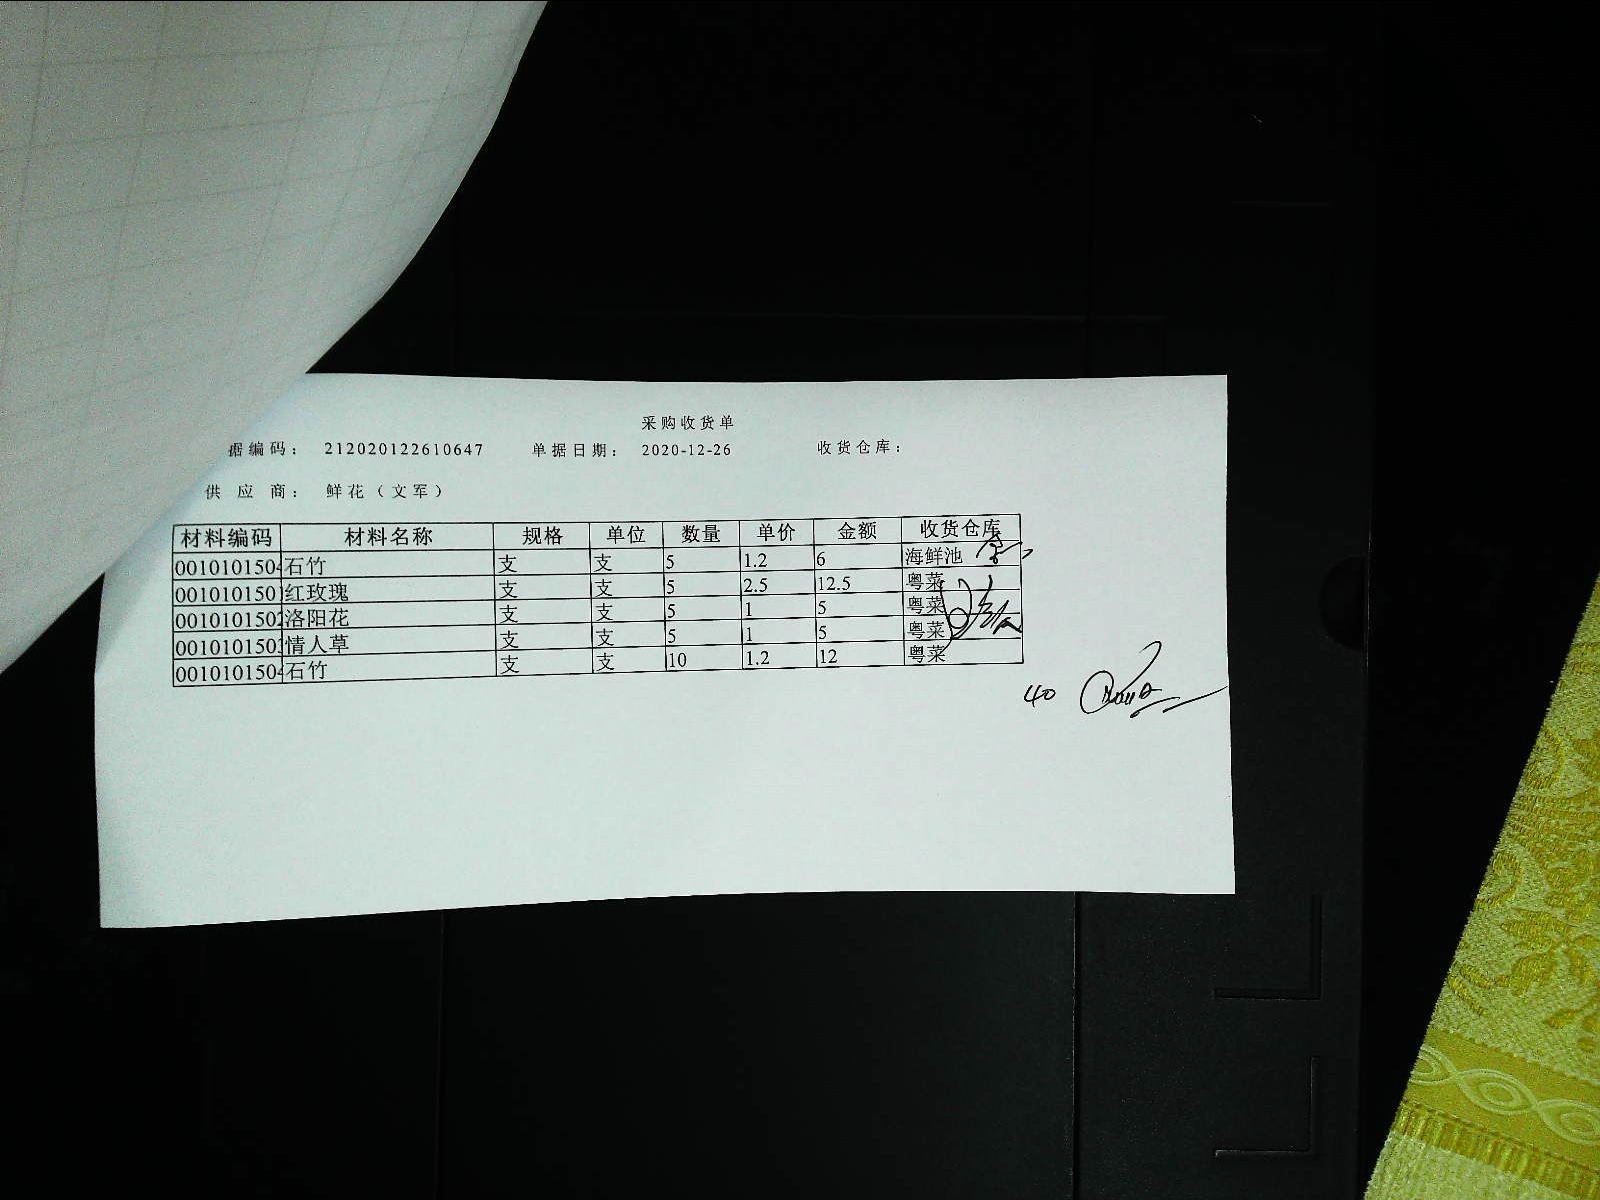 采购收货单
据编码： 212020122610647 单据日期： 2020-12-26 收货仓库：
供应商： 鲜花（文军）
材料编码 材料名称 规格 单位 数量 单价 金额 收货仓库
0010101504 石竹 支 支 5 1.2 6 海鲜池
0010101501 红玫瑰 支 支 5 2.5 12.5 粤菜
0010101502 洛阳花 支 支 5 1 5 粤菜
0010101503 情人草 支 支 5 1 5 粤菜
0010101504 石竹 支 支 10 1.2 12 粤菜
40